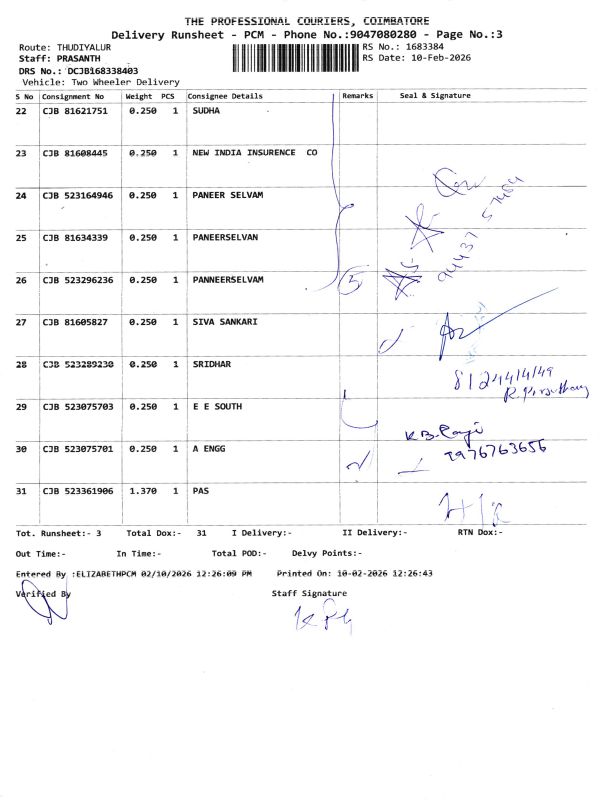 THE PROFESSIONAL COURIERS, COIMBATORE
Delivery Runsheet - PCM - Phone No.:9047080280 - Page No.:3
Route: THUDIYALUR
RS No.: 1683384
Staff: PRASANTH
RS Date: 10-Feb-2026
DRS No.: DCJB168338403
Vehicle: Two Wheeler Delivery
S No Consignment No Weight PCS Consignee Details Remarks Seal & Signature
22 CJB 81621751 0.250 1 SUDHA
23 CJB 81608445 0.250 1 NEW INDIA INSURENCE CO
24 CJB 523164946 0.250 1 PANEER SELVAM
25 CJB 81634339 0.250 1 PANEERSELVAN
94437 57484
26 CJB 523296236 0.250 1 PANNEERSELVAM 5
27 CJB 81605827 0.250 1 SIVA SANKARI
28 CJB 523289230 0.250 1 SRIDHAR
8124414149
29 CJB 523075703 0.250 1 E E SOUTH
K.B.
30 CJB 523075701 0.250 1 A ENGG
9976763656
31 CJB 523361906 1.370 1 PAS
Tot. Runsheet:- 3 Total Dox:- 31 I Delivery:- II Delivery:- RTN Dox:-
Out Time:- In Time:- Total POD:- Delvy Points:-
Entered By :ELIZABETHPCM 02/10/2026 12:26:09 PM Printed On: 10-02-2026 12:26:43
Verified By Staff Signature